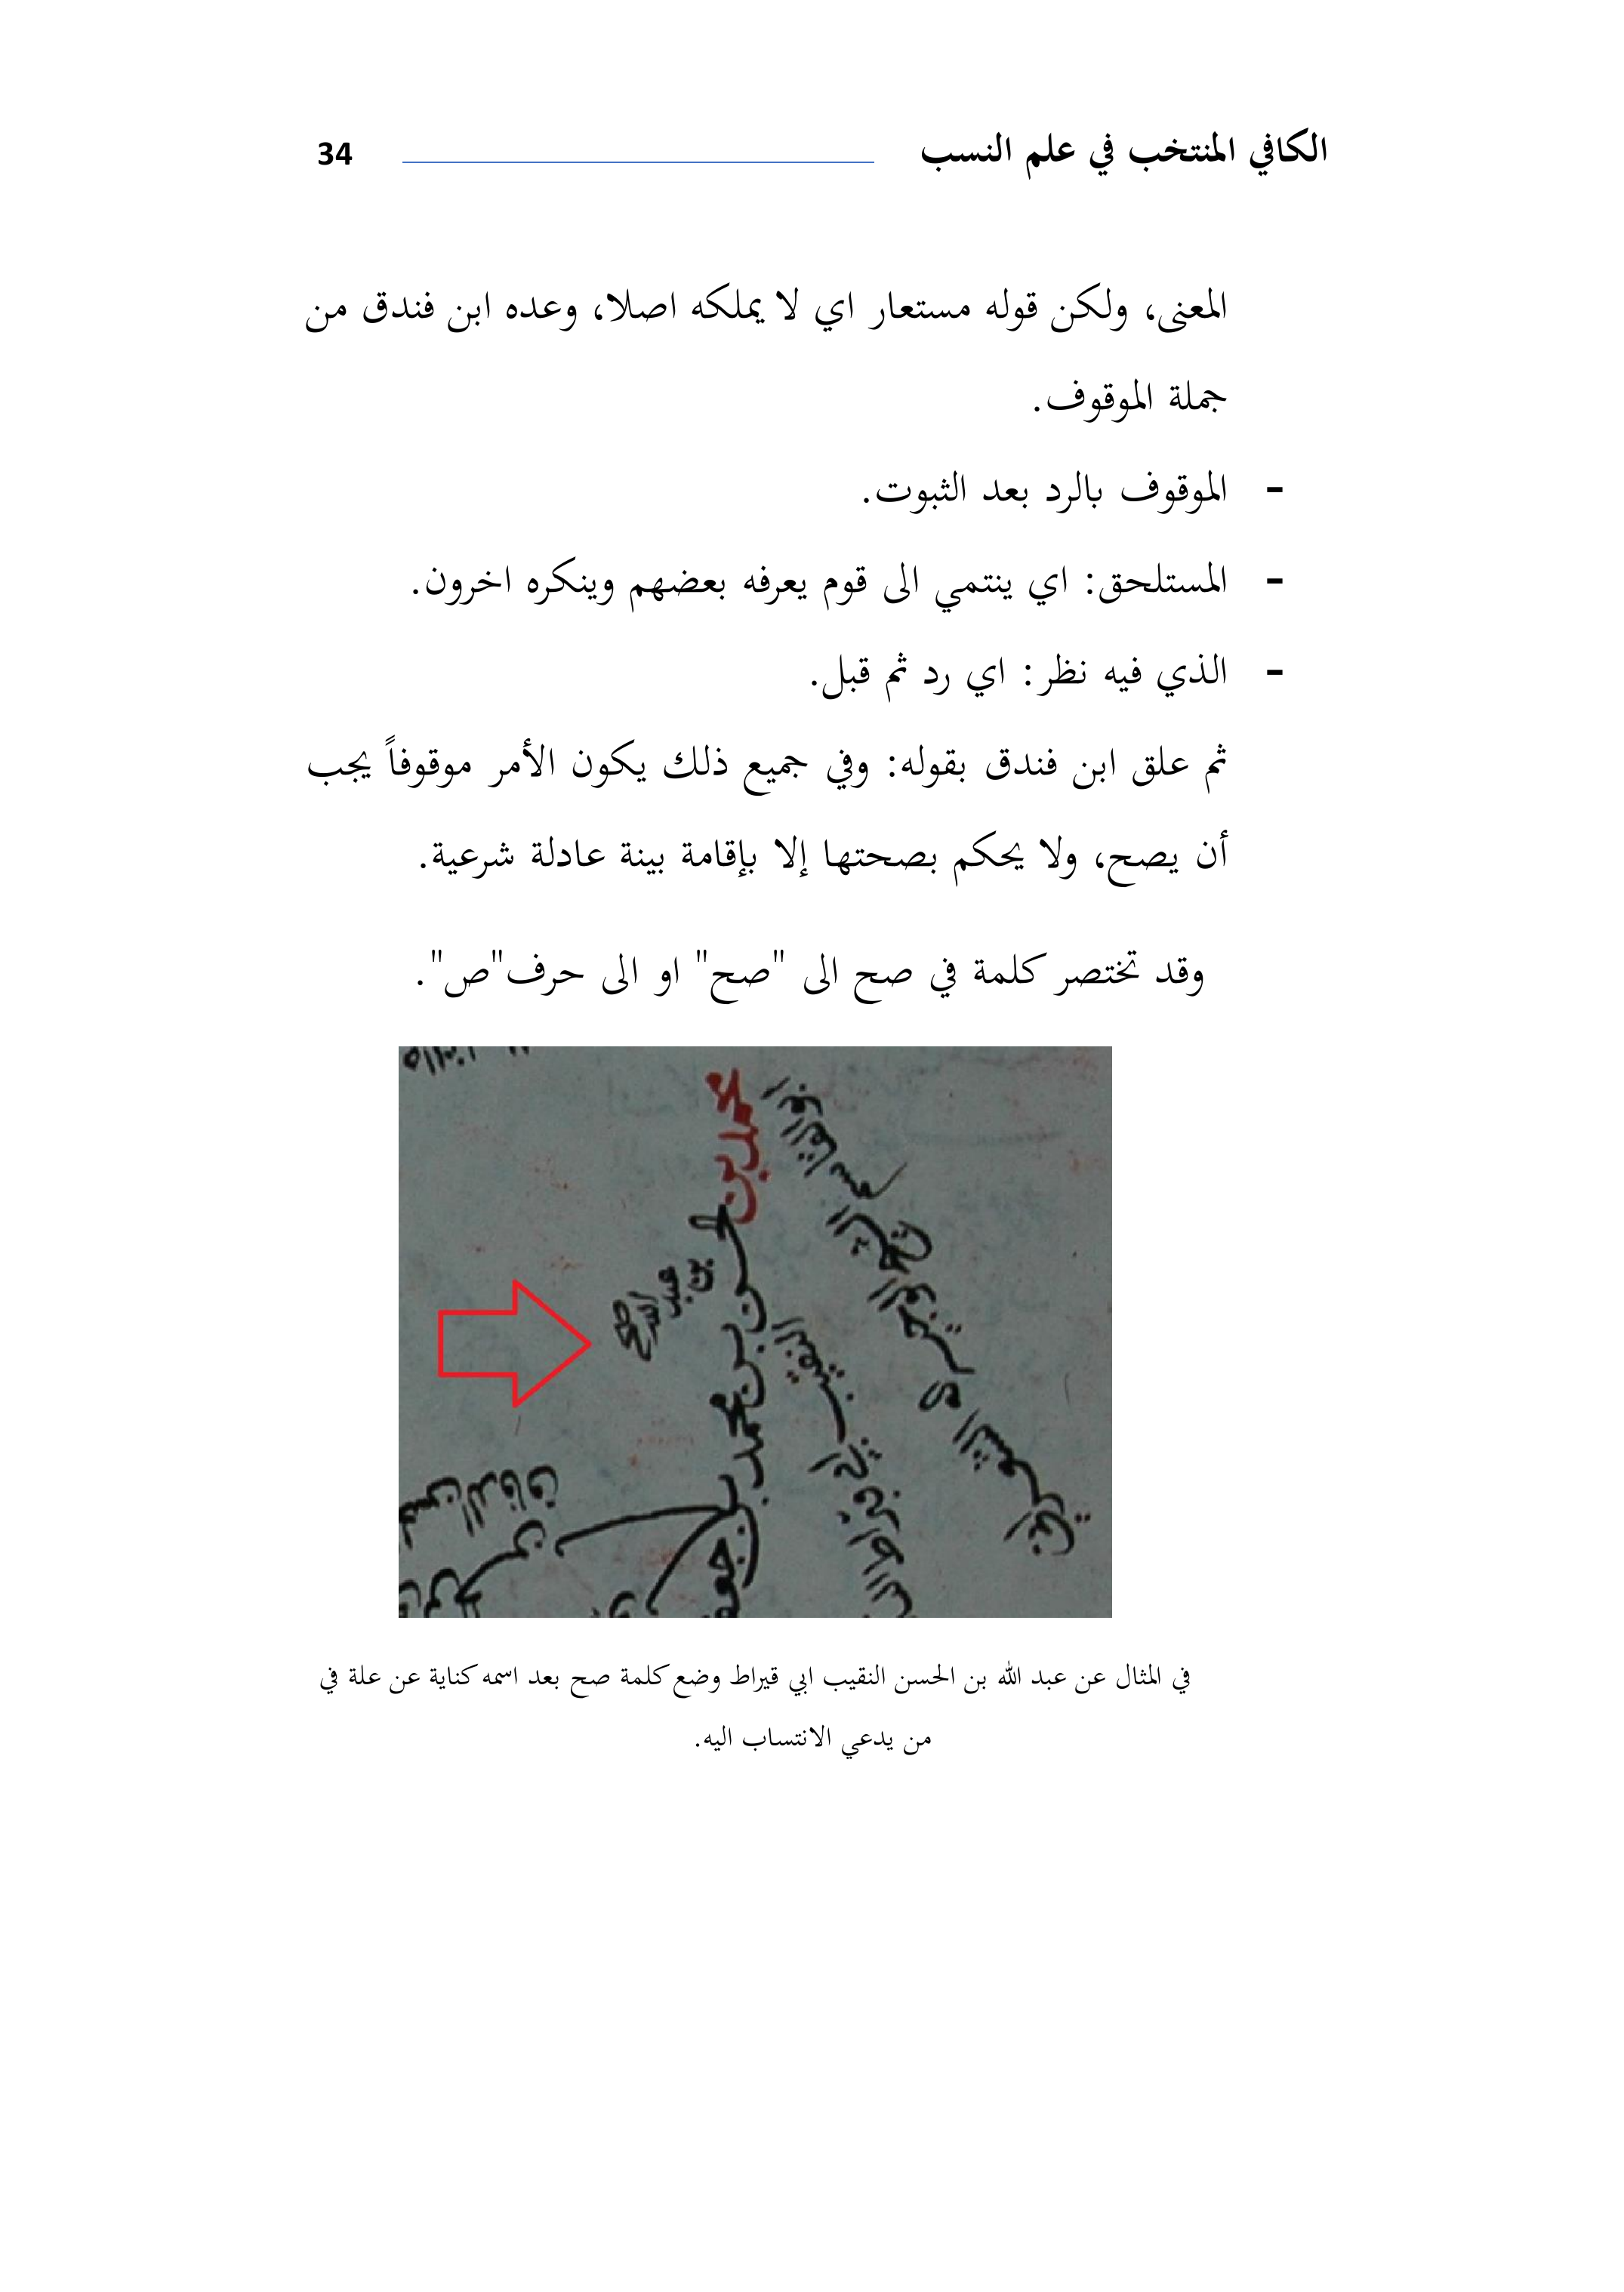 الكافي المنتخب في علم النسب 34
المعنى، ولكن قوله مستعار اي لا يملكه اصلا، وعده ابن فندق من
جملة الموقوف.
- الموقوف بالرد بعد الثبوت.
- المستلحق: اي ينتمي الى قوم يعرفه بعضهم وينكره اخرون.
- الذي فيه نظر: اي رد ثم قبل.
ثم علق ابن فندق بقوله: وفي جميع ذلك يكون الأمر موقوفاً يجب
أن يصح، ولا يحكم بصحتها إلا بإقامة بينة عادلة شرعية.
وقد تختصر كلمة في صح الى "صح" او الى حرف"ص".
محمد بن
حسن بن محمد بن جعفر
بن عبد الله صح
النقيب
في المثال عن عبد الله بن الحسن النقيب ابي قيراط وضع كلمة صح بعد اسمه كناية عن علة في
من يدعي الانتساب اليه.